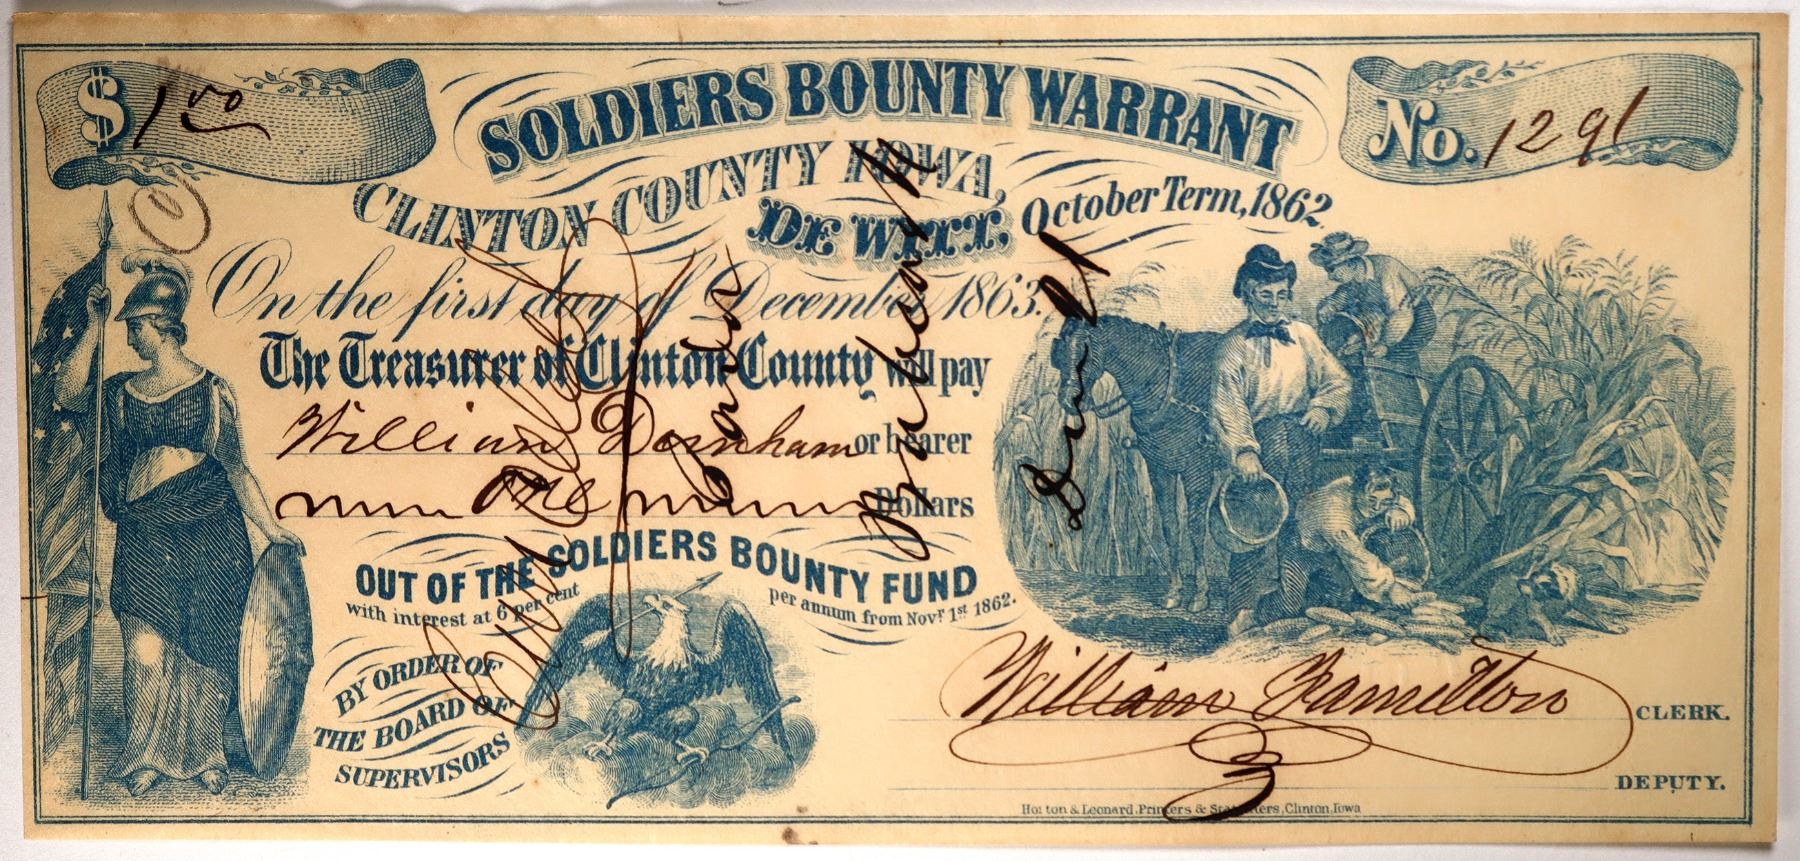 $ 1 00
SOLDIERS BOUNTY WARRANT
No. 1291
CLINTON COUNTY IOWA,
DE WITT, October Term, 1862.
On the first day of December 1863.
The Treasurer of Clinton County will pay
William Dornham or bearer
One Dollars
OUT OF THE SOLDIERS BOUNTY FUND
with interest at 6 per cent per annum from Novr. 1st 1862.
BY ORDER OF
THE BOARD OF
SUPERVISORS
William Hamilton CLERK.
DEPUTY.
Horton & Leonard, Printers & Stationers, Clinton, Iowa